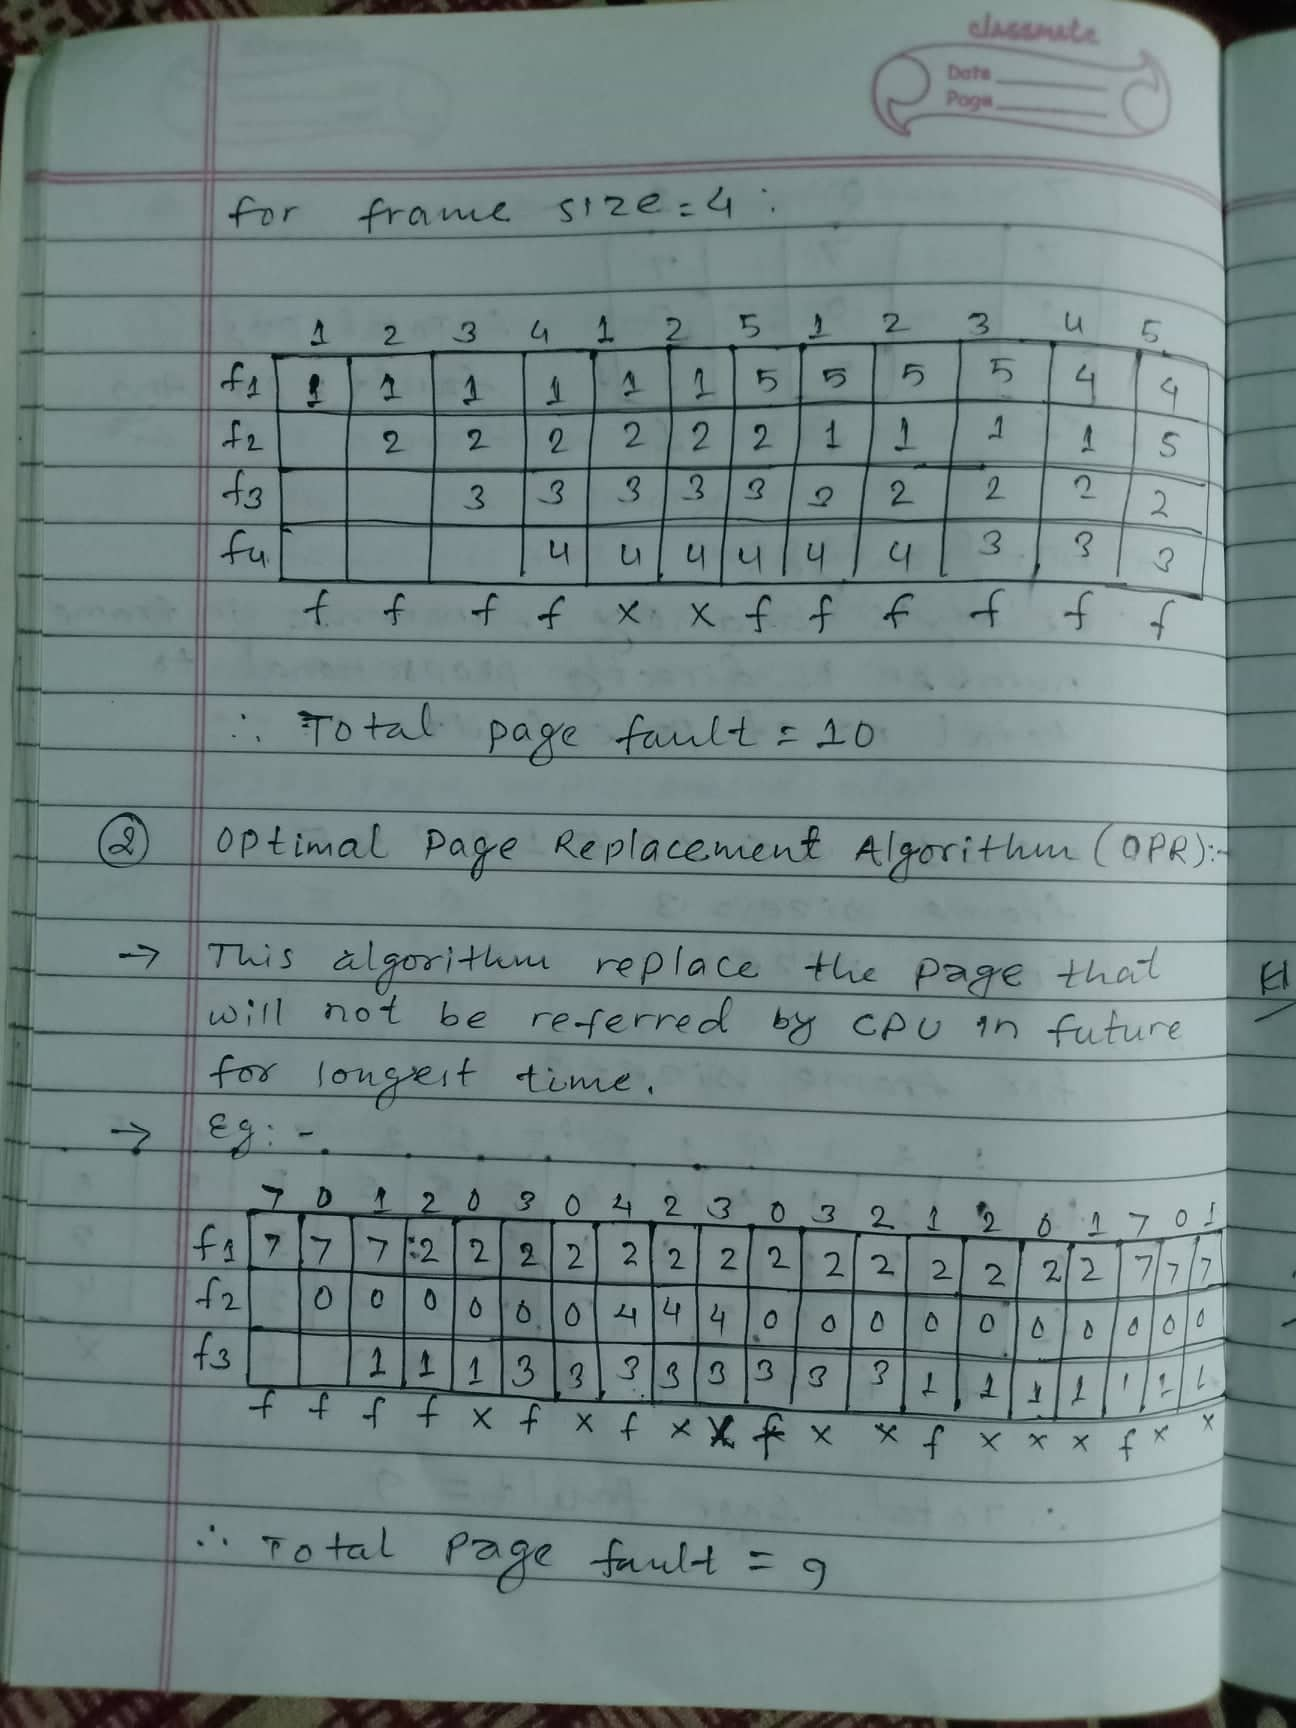 classmate
Date
Page
for frame size = 4 :
1 2 3 4 1 2 5 1 2 3 4 5
f1 1 1 1 1 1 1 5 5 5 5 4 4
f2 2 2 2 2 2 2 1 1 1 1 5
f3 3 3 3 3 3 3 2 2 2 2
f4 4 4 4 4 4 4 3 3 3
f f f f x x f f f f f f
∴ Total page fault = 10
② Optimal Page Replacement Algorithm (OPR):-
→ This algorithm replace the page that
will not be referred by CPU in future
for longest time.
→ Eg: -
7 0 1 2 0 3 0 4 2 3 0 3 2 1 2 0 1 7 0 1
f1 7 7 7 2 2 2 2 2 2 2 2 2 2 2 2 2 2 7 7 7
f2 0 0 0 0 0 0 4 4 4 0 0 0 0 0 0 0 0 0 0
f3 1 1 1 3 3 3 3 3 3 3 3 1 1 1 1 1 1 1
f f f f x f x f x x f x x f x x x f x x
∴ Total Page fault = 9